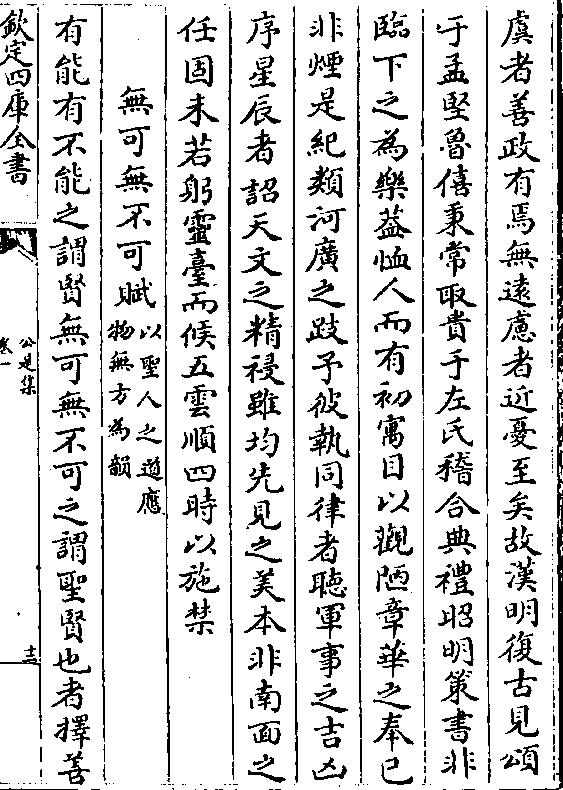 虞者善政有焉無遠慮者近憂至矣故漢明復古見頌
于孟堅魯僖秉常取貴于左氏稽合典禮昭明策書非
臨下之為樂葢恤人而有初寓目以觀陋章華之奉已
非煙是紀類河廣之跂予彼執同律者聽軍事之吉凶
序星辰者詔天文之精祲雖均先見之美本非南面之
任固未若躬靈臺而候五雲順四時以施禁
無可無不可賦以聖人之道應
物無方為韻
有能有不能之謂賢無可無不可之謂聖賢也者擇善
欽定四庫全書
公是集
卷一
十三